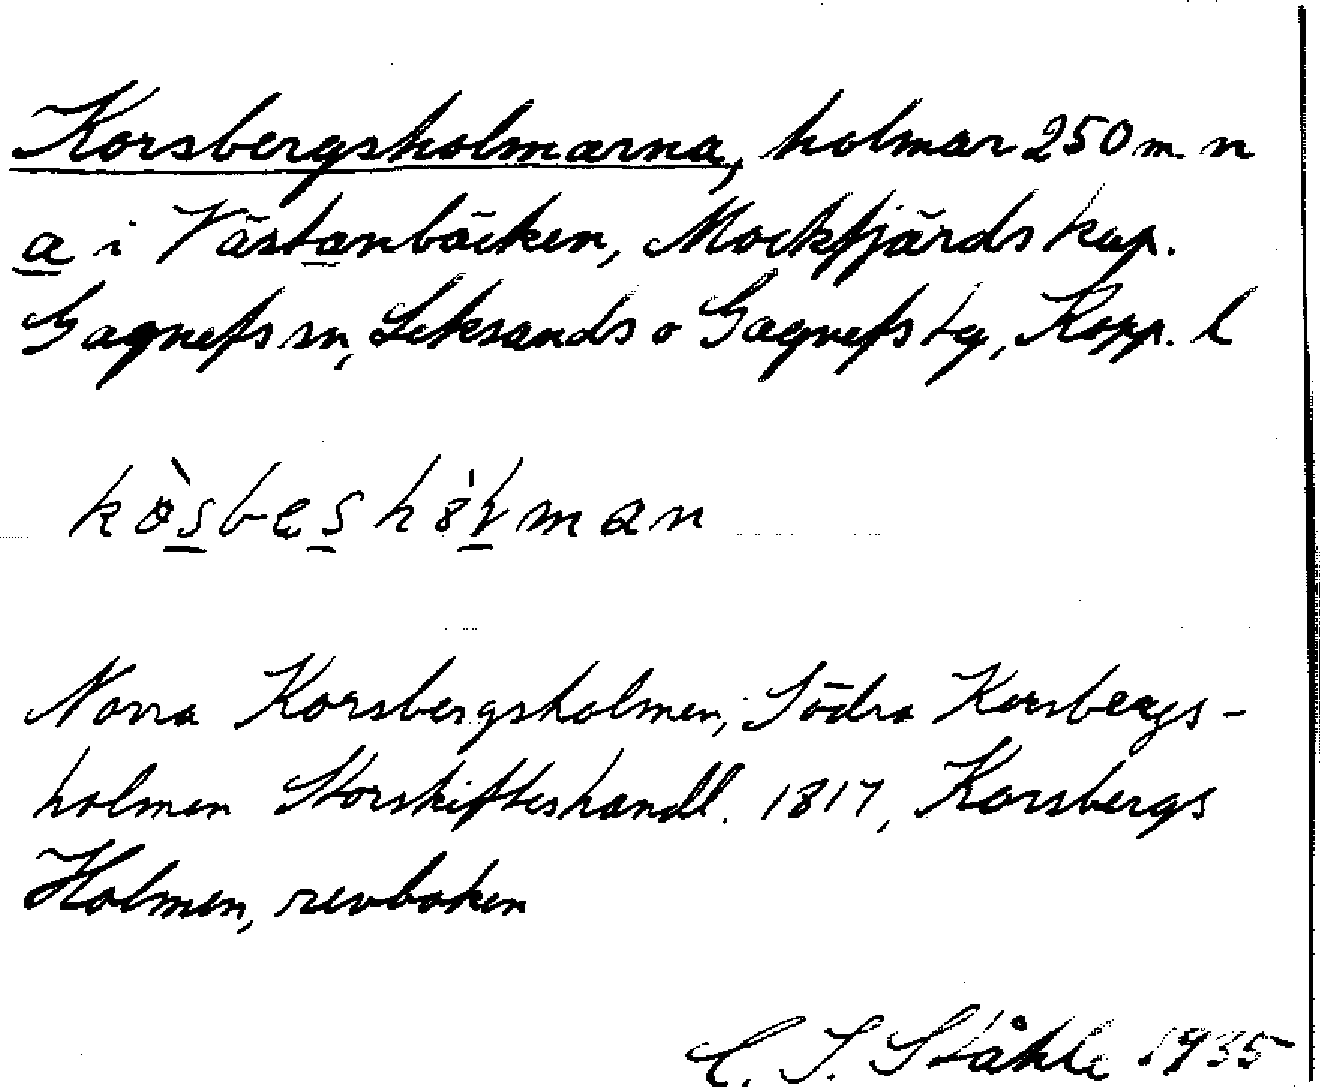 Korsbergsholmarna, holmar 250 m. n
a i Västanbäcken, Mockfjärds kap.
Gagnefs sn, Leksands o Gagnefs tg, Kopp. l
Norra Korsbergsholmen, Södra Korsbergs-
holmen Storskifteshandl. 1817, Korsbergs
Holmen, revboken
C. I. Ståhle 1935